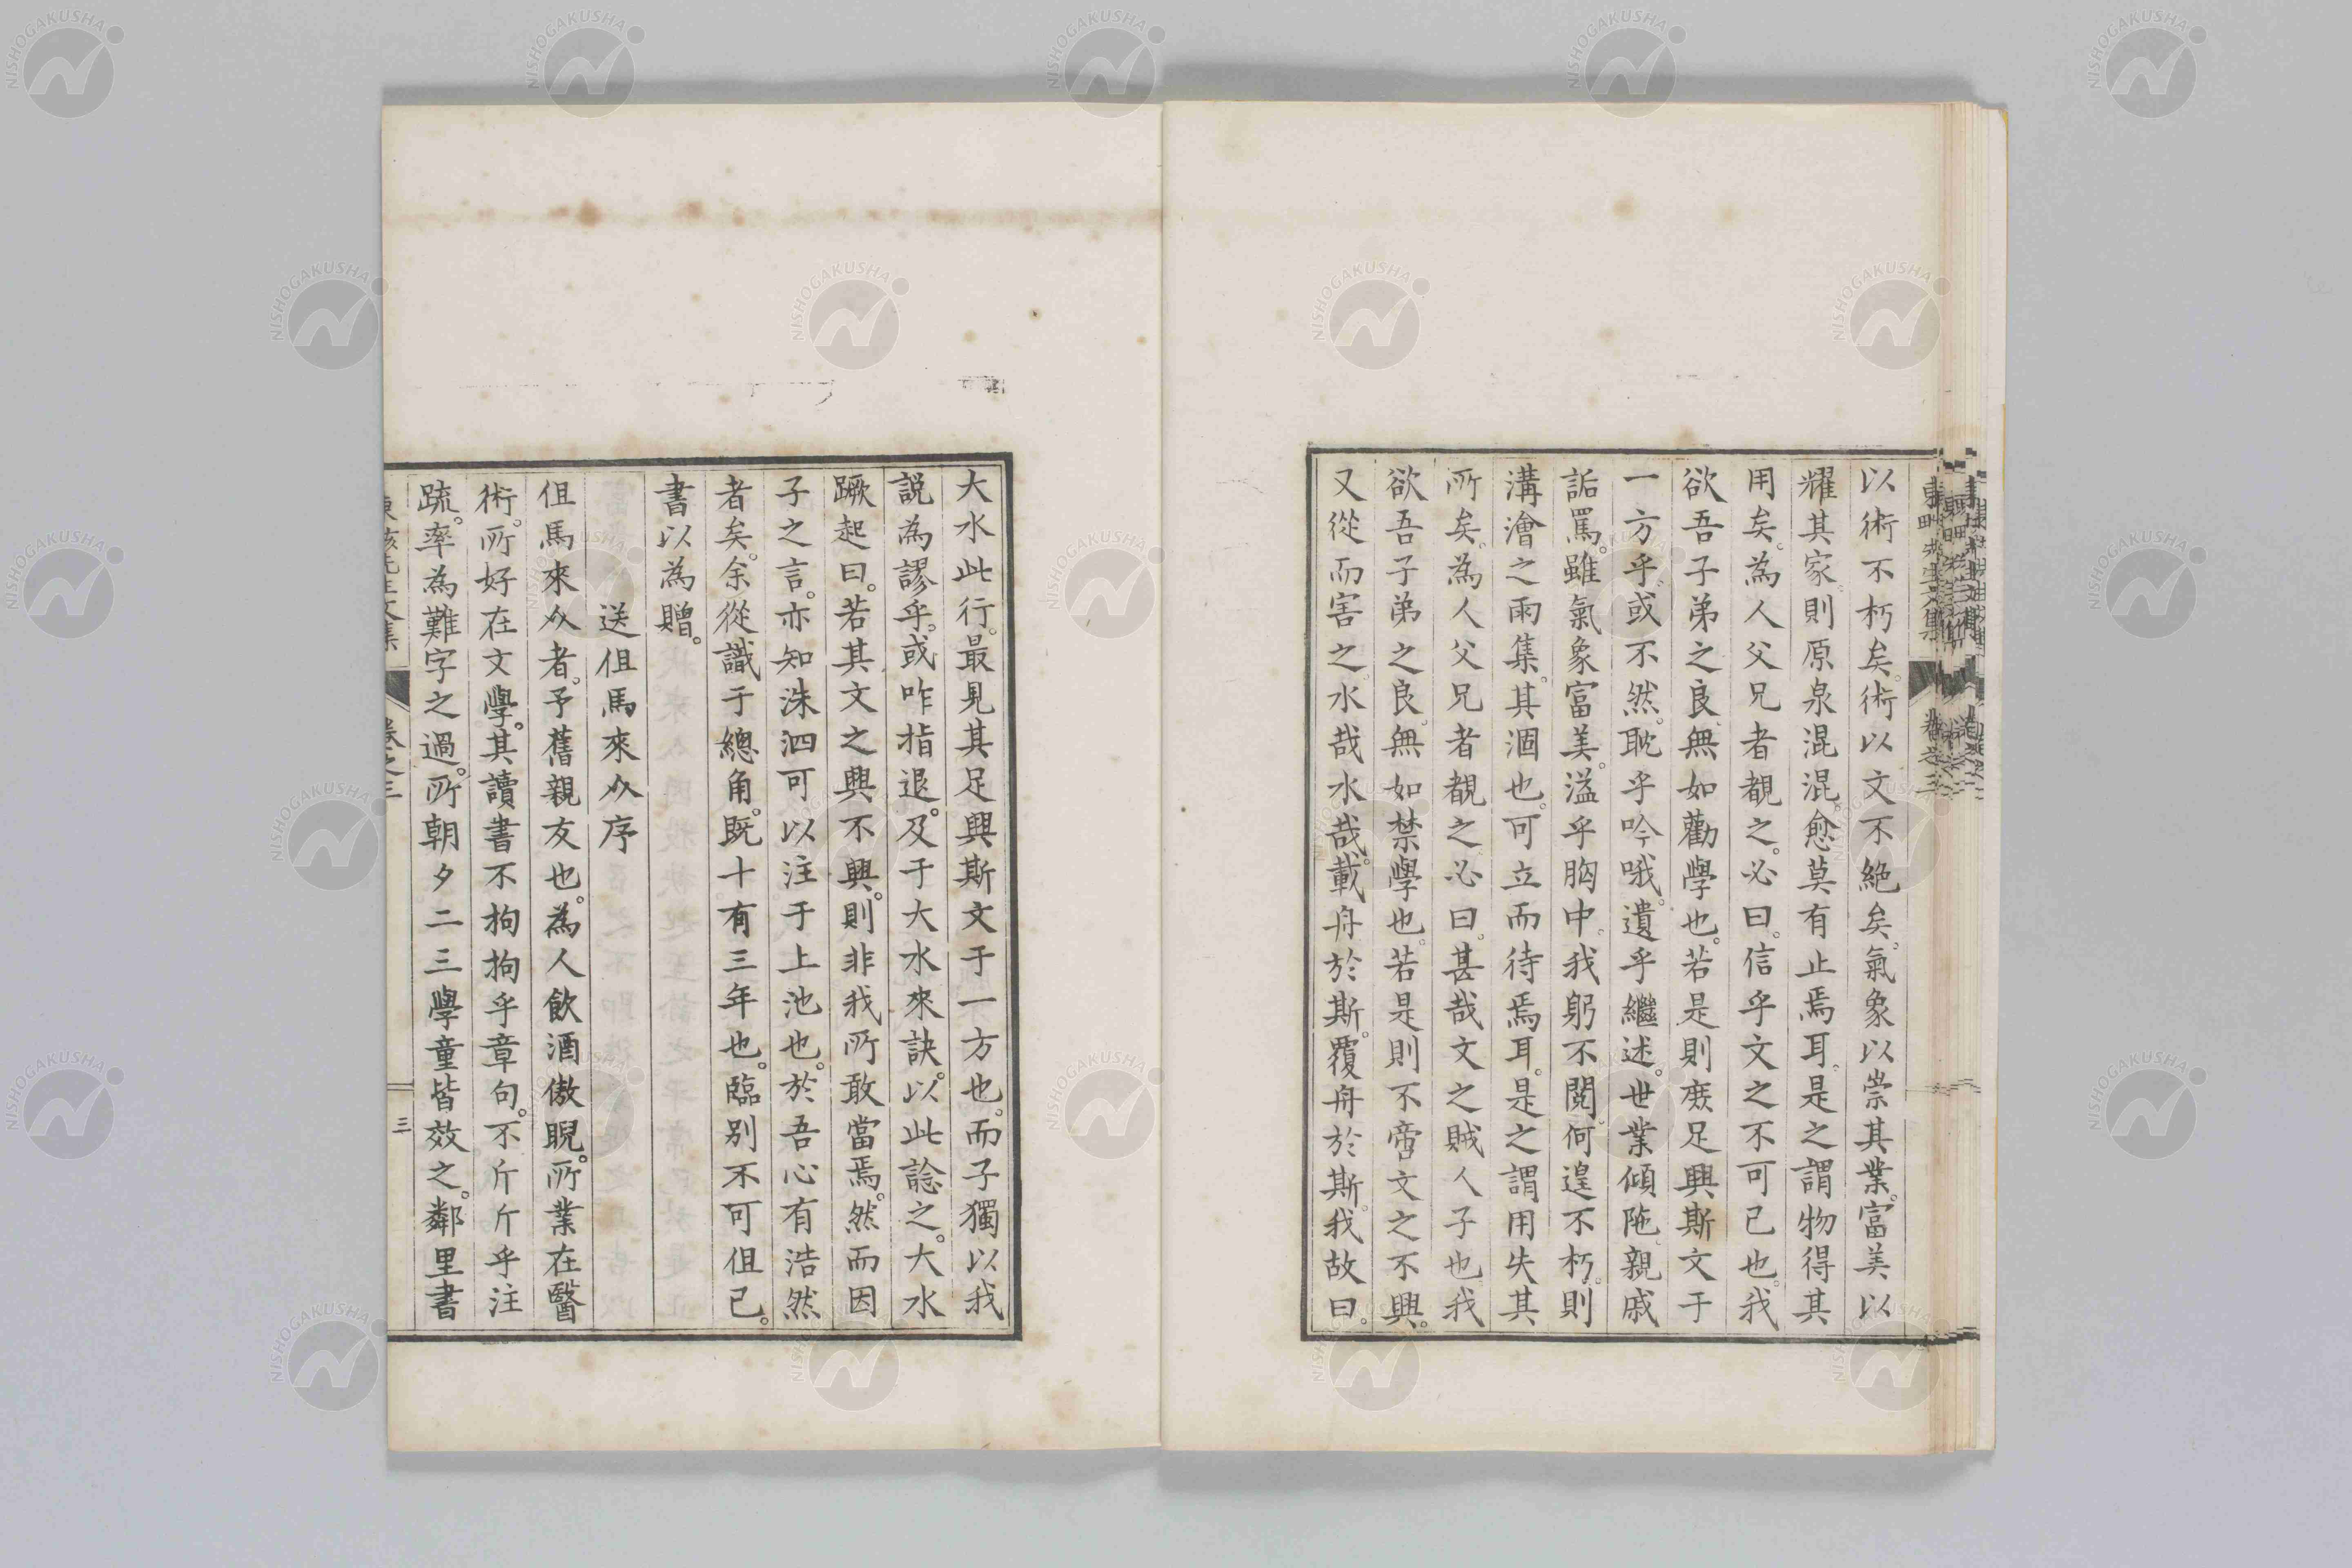 以術不朽矣。術以文不絶矣。氣象以崇其業。富美以
耀其家。則原泉混混。愈莫有止焉耳。是之謂物得其
用矣。為人父兄者覩之。必曰。信乎文之不可已也。我
欲吾子弟之良。無如勸學也。若是則庶足興斯文于
一方乎。或不然。耽乎吟哦。遺乎繼述。世業傾陁。親戚
詬罵。雖氣象富美。溢乎胸中。我躬不閲。何遑不朽。則
溝澮之雨集。其涸也。可立而待焉耳。是之謂用失其
所矣。為人父兄者覩之。必曰。甚哉文之賊人子也。我
欲吾子弟之良。無如禁學也。若是則不啻文之不興。
又從而害之。水哉水哉。載舟於斯。覆舟於斯。我故曰。
大水此行。最見其足興斯文于一方也。而子獨以我
説為謬乎。或咋指退。及于大水來訣。以此諗之。大水
蹶起曰。若其文之興不興。則非我所敢當焉。然而因
子之言。亦知洙泗可以注于上池也。於吾心有浩然
者矣。余從識于總角。既十有三年也。臨別不可但已。
書以為贈。
送但馬來从序
但馬來从者。予舊親友也。為人飲酒傲睨。所業在醫
術。所好在文學。其讀書不拘拘乎章句。不斤斤乎注
疏。率為難字之過。所朝夕二三學童皆效之。鄰里書
三
NISHOGAKUSHA